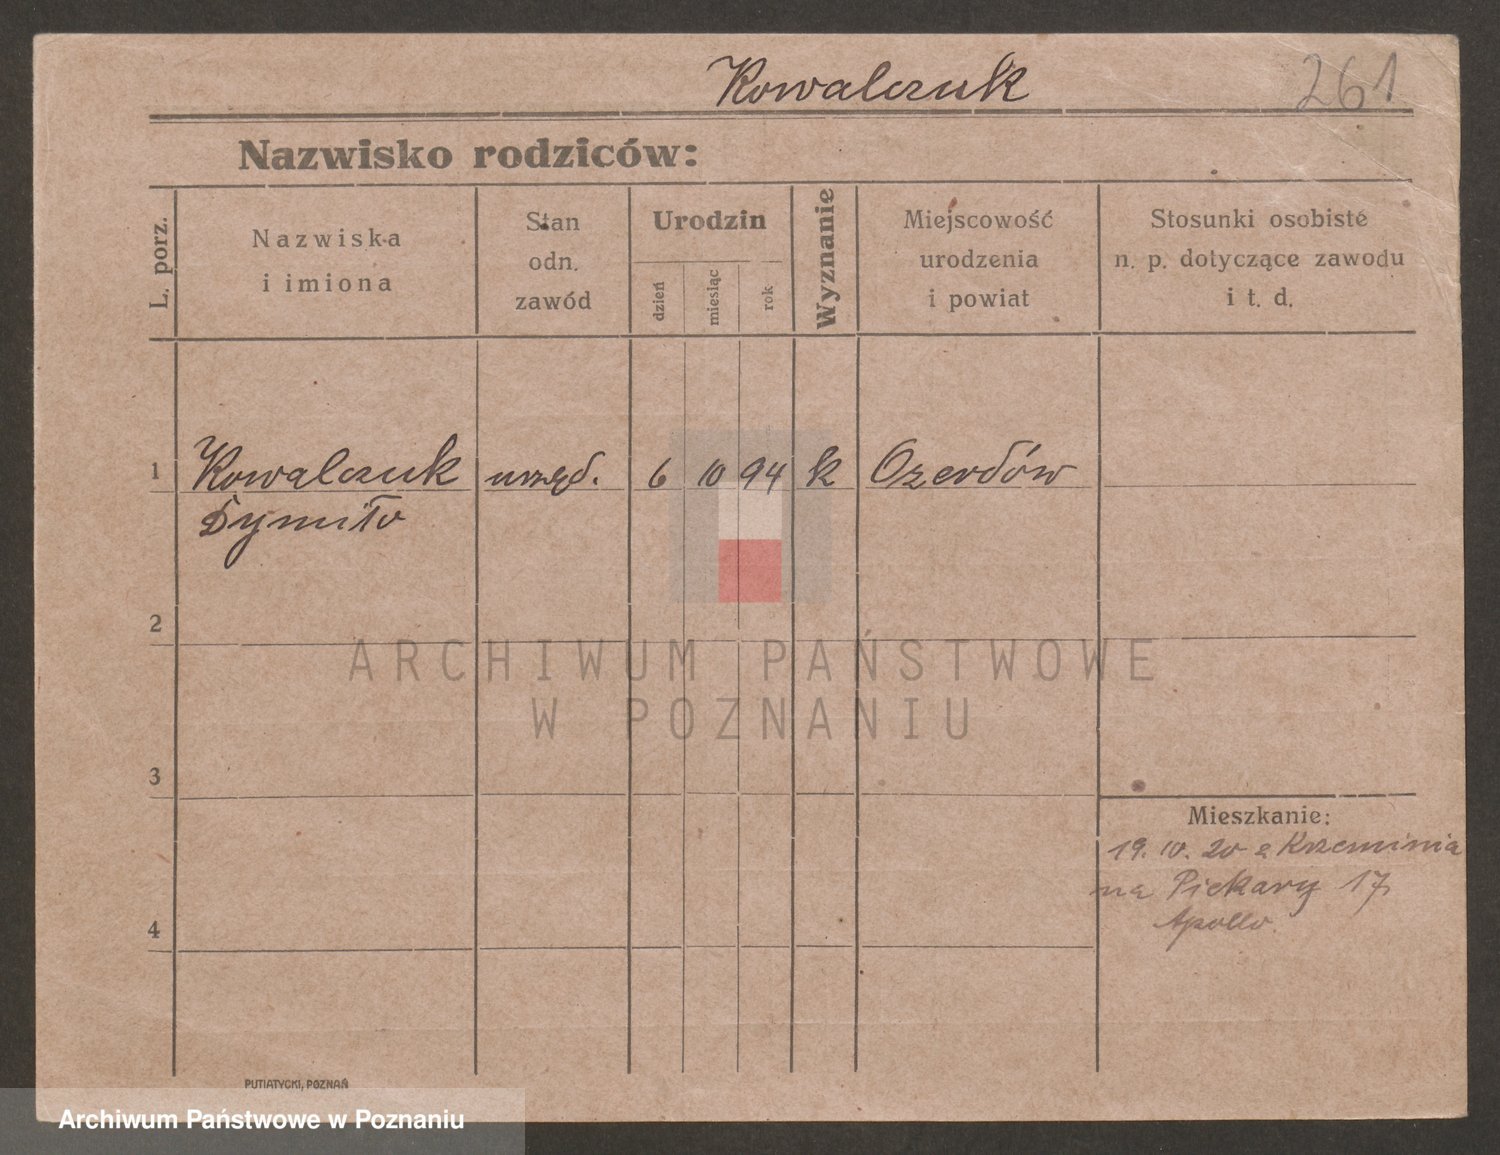 Kowalczuk 261
Nazwisko rodziców:
L. porz.
Nazwiska
i imiona
Stan
odn.
zawód
Urodzin
dzień
miesiąc
rok
Wyznanie
Miejscowość
urodzenia
i powiat
Stosunki osobiste
n. p. dotyczące zawodu
i t. d.
1 Kowalczuk urzęd. 6 10 94 k Ozerdów
Dymitr
2
ARCHIWUM PAŃSTWOWE
W POZNANIU
3
Mieszkanie:
19. IV. 20 z Krzeminia
na Piekary 17
Apollo
4
PUTIATYCKI, POZNAŃ
Archiwum Państwowe w Poznaniu